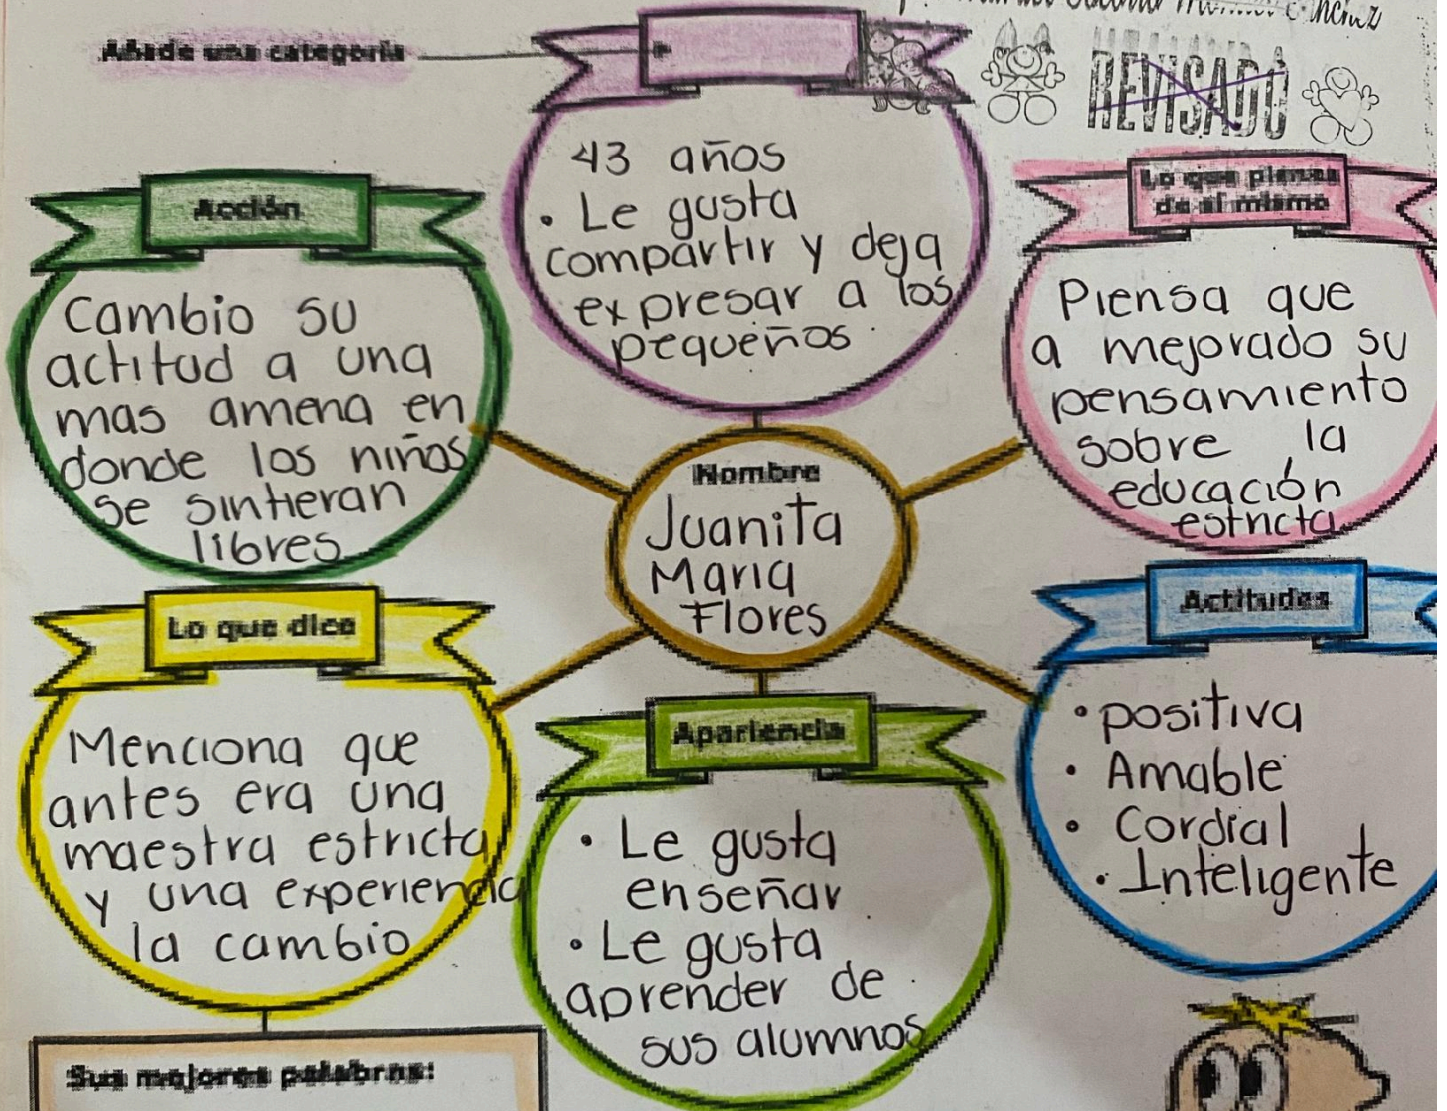 Añade una categoría
REVISADO
43 años
• Le gusta
compartir y deja
expresar a los
pequeños
Acción
Cambio su
actitud a una
mas amena en
donde los niños
se sintieran
libres
Lo que piensa
de si mismo
Piensa que
a mejorado su
pensamiento
sobre la
educación
estricta
Nombre
Juanita
Maria
Flores
Lo que dice
Menciona que
antes era una
maestra estricta
y una experiencia
la cambio
Apariencia
• Le gusta
enseñar
• Le gusta
aprender de
sus alumnos
Actitudes
• positiva
• Amable
• Cordial
• Inteligente
Sus mejores palabras: